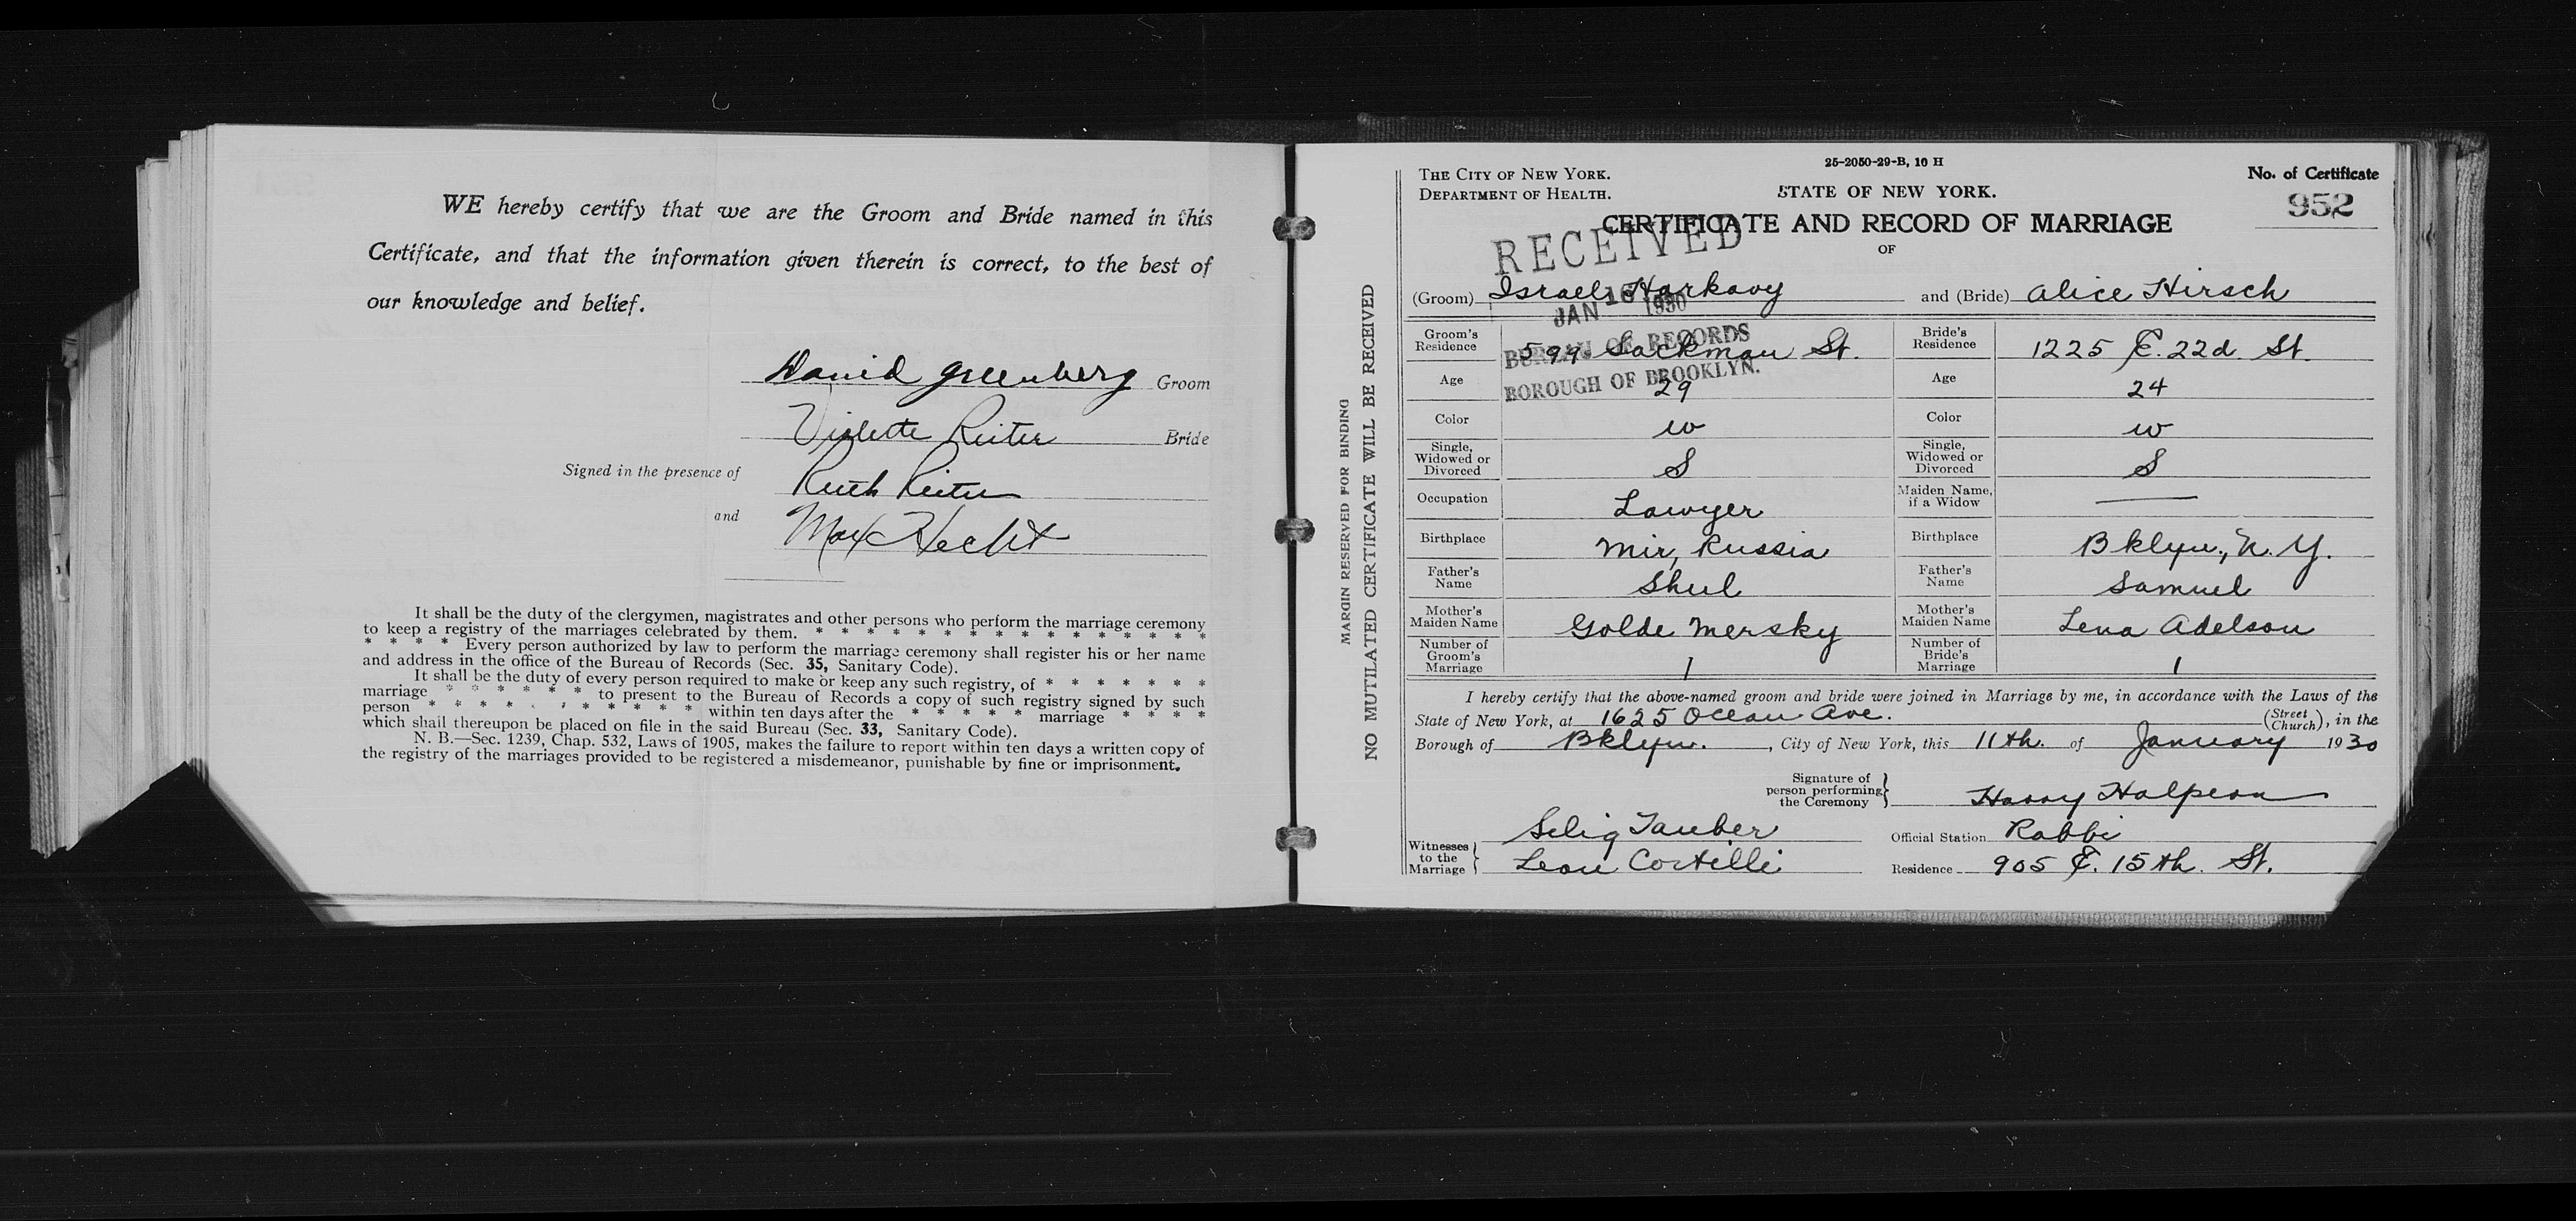 WE hereby certify that we are the Groom and Bride named in this
Certificate, and that the information given therein is correct, to the best of
our knowledge and belief.
David Greenberg Groom
Violette Reiter Bride
Signed in the presence of Ruth Reiter
and Max Hecht
It shall be the duty of the clergymen, magistrates and other persons who perform the marriage ceremony
to keep a registry of the marriages celebrated by them. * * * * * * * * * * * * * * * *
* * * * Every person authorized by law to perform the marriage ceremony shall register his or her name
and address in the office of the Bureau of Records (Sec. 35, Sanitary Code).
It shall be the duty of every person required to make or keep any such registry, of * * * * * * *
marriage * * * * * * to present to the Bureau of Records a copy of such registry signed by such
person * * * * * * * * * * * within ten days after the * * * * * marriage * * * *
which shall thereupon be placed on file in the said Bureau (Sec. 33, Sanitary Code).
N. B.—Sec. 1239, Chap. 532, Laws of 1905, makes the failure to report within ten days a written copy of
the registry of the marriages provided to be registered a misdemeanor, punishable by fine or imprisonment.
MARGIN RESERVED FOR BINDING
NO MUTILATED CERTIFICATE WILL BE RECEIVED
25-2050-29-B, 10 H
THE CITY OF NEW YORK.
DEPARTMENT OF HEALTH.
STATE OF NEW YORK.
No. of Certificate
952
CERTIFICATE AND RECORD OF MARRIAGE
OF
RECEIVED
JAN 16 1930
BUREAU OF RECORDS
BOROUGH OF BROOKLYN.
(Groom) Israel Harkavy and (Bride) Alice Hirsch
Groom's Residence 599 Sackman St. Bride's Residence 1225 E. 22d St.
Age 29 Age 24
Color W Color W
Single, Widowed or Divorced S Single, Widowed or Divorced S
Occupation Lawyer Maiden Name, if a Widow —
Birthplace Mir, Russia Birthplace Bklyn., N. Y.
Father's Name Shul Father's Name Samuel
Mother's Maiden Name Golde Mersky Mother's Maiden Name Lena Adelson
Number of Groom's Marriage 1 Number of Bride's Marriage 1
I hereby certify that the above-named groom and bride were joined in Marriage by me, in accordance with the Laws of the
State of New York, at 1625 Ocean Ave. (Street Church), in the
Borough of Bklyn. , City of New York, this 11th. of January 1930
Signature of person performing the Ceremony Harry Halpern
Witnesses to the Marriage Selig Tauber
Leon Cortilli
Official Station Rabbi
Residence 905 E. 15th. St.